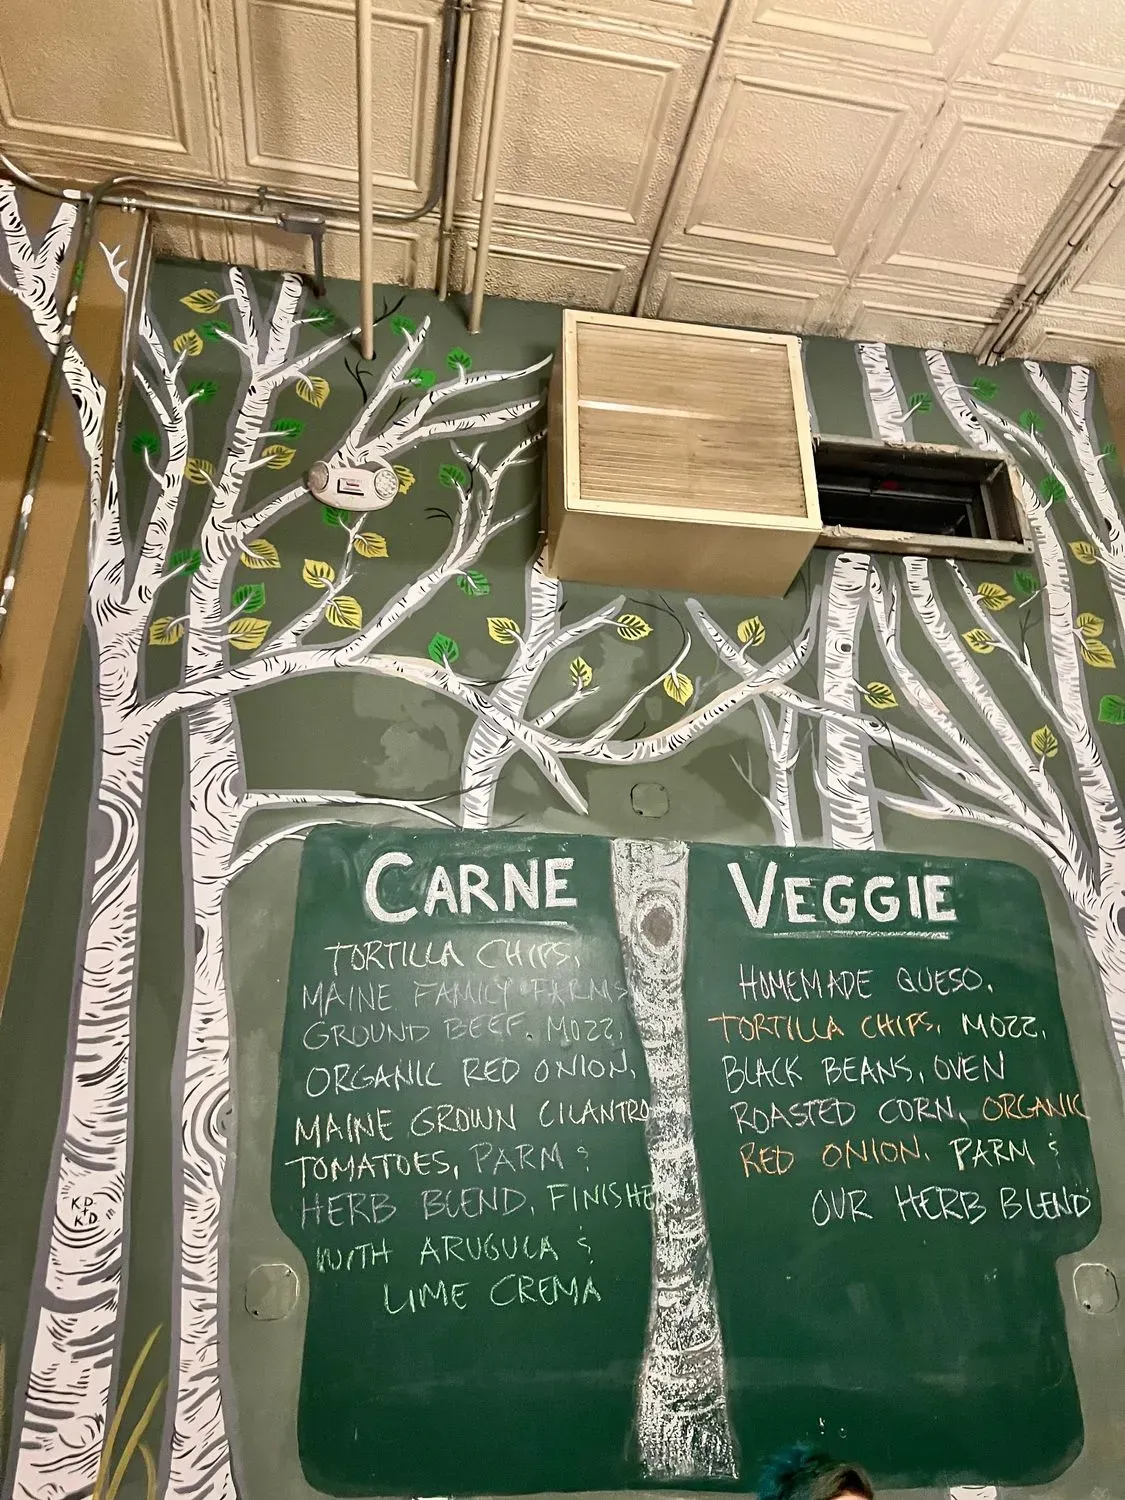 CARNE
TORTILLA CHIPS,
MAINE FAMILY FARMS
GROUND BEEF, MOZZ,
ORGANIC RED ONION,
MAINE GROWN CILANTRO
TOMATOES, PARM &
HERB BLEND, FINISHED
WITH ARUGULA &
LIME CREMA
VEGGIE
HOMEMADE QUESO,
TORTILLA CHIPS, MOZZ,
BLACK BEANS, OVEN
ROASTED CORN, ORGANIC
RED ONION, PARM &
OUR HERB BLEND
KD
+
KD